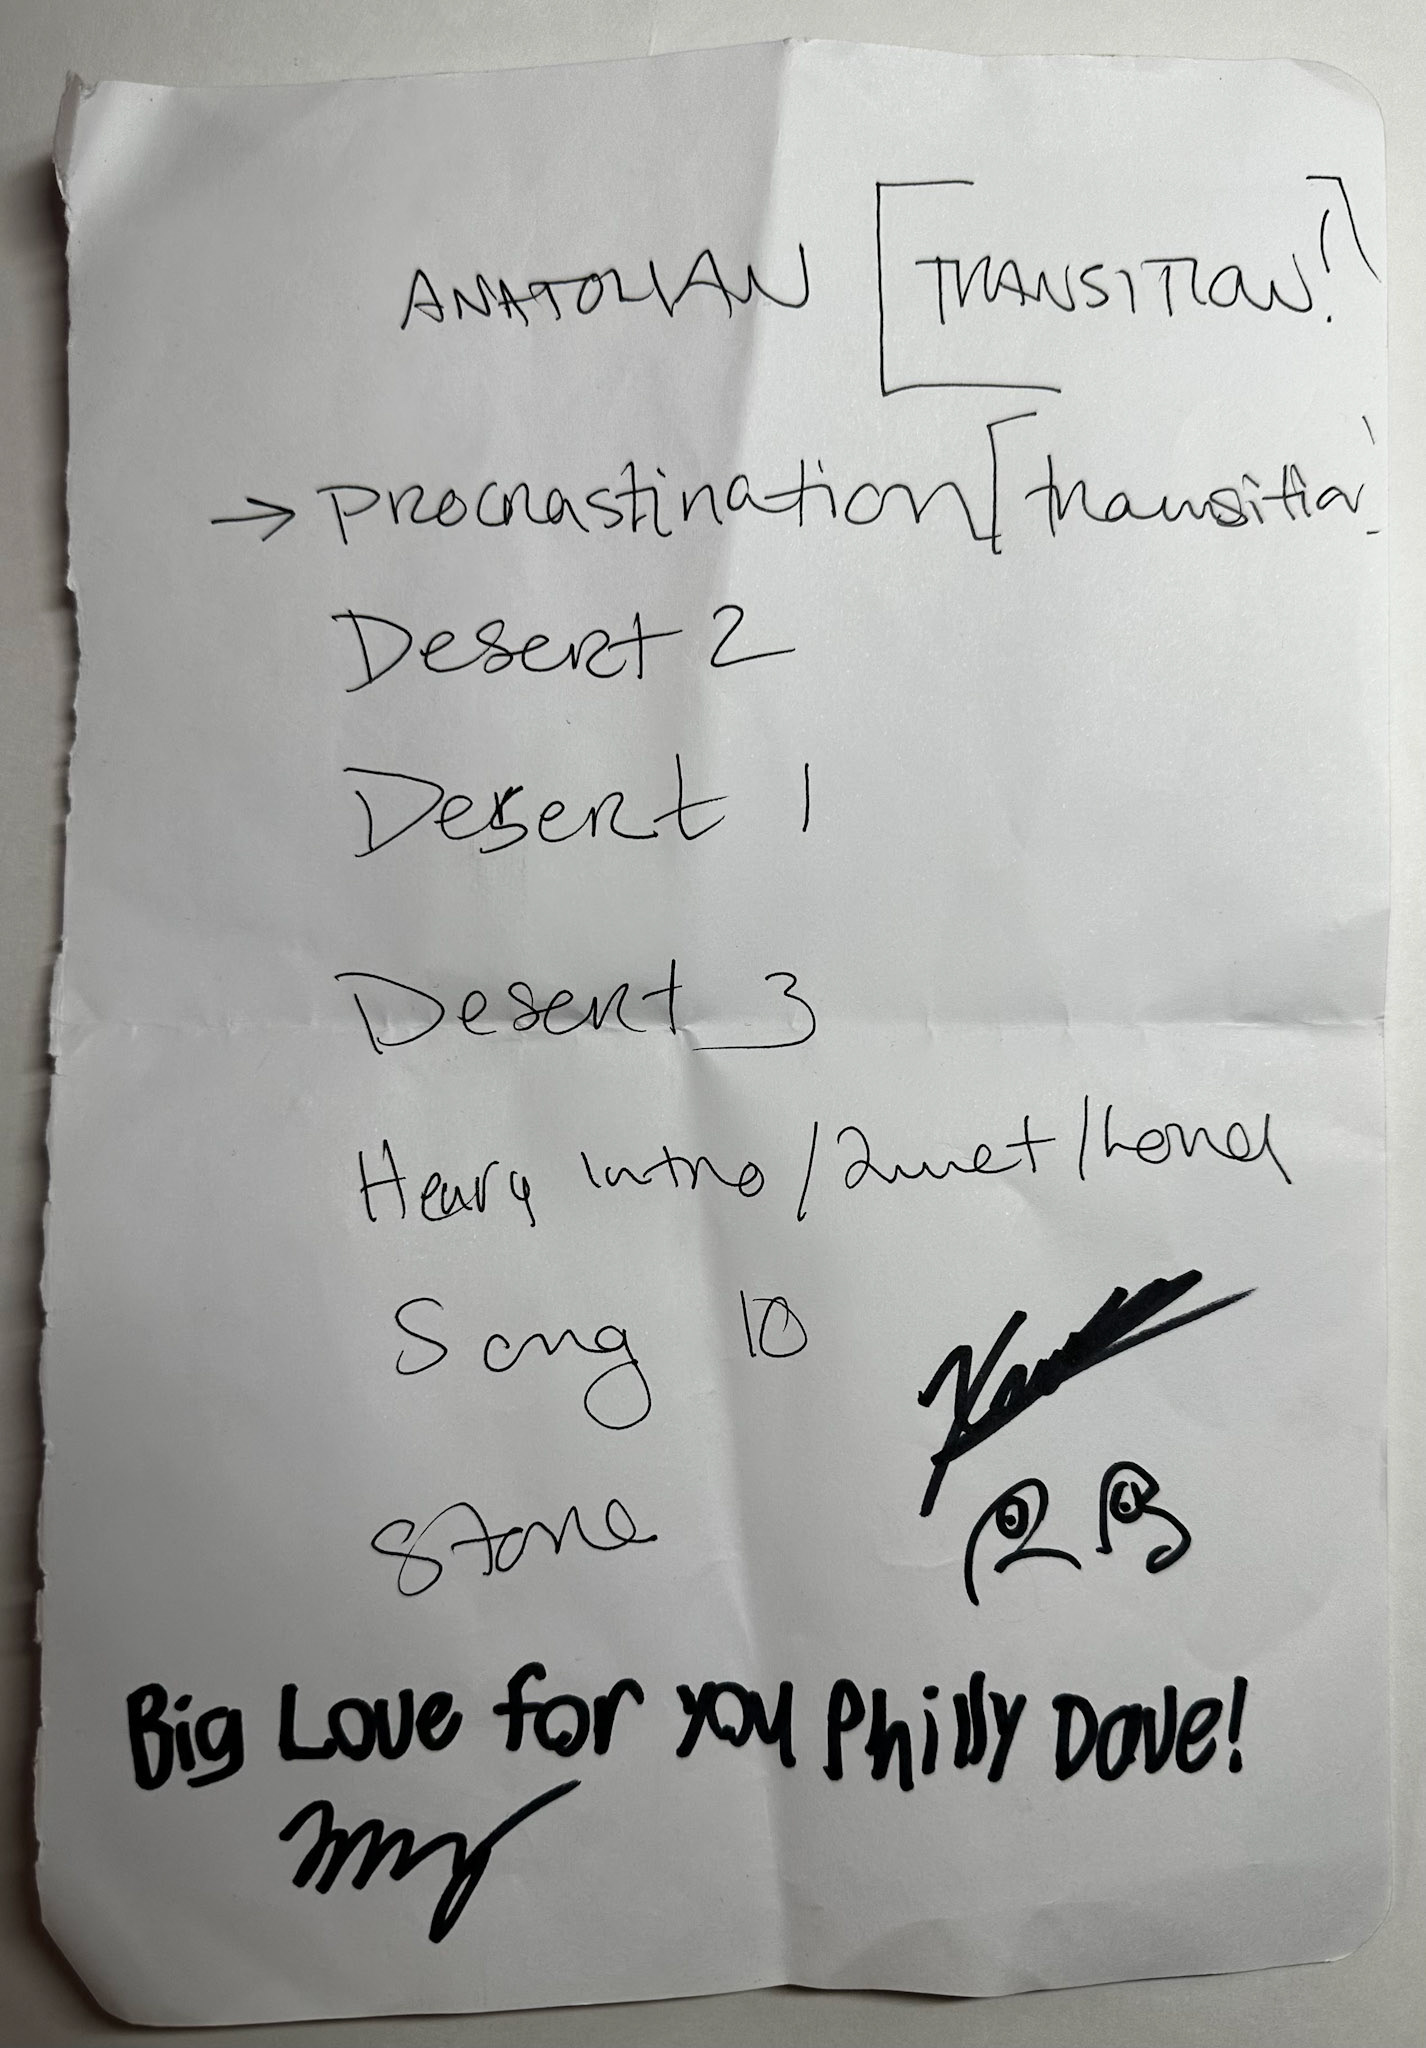 ANATOLIAN [TRANSITION!]
→ Procrastination [transition
Desert 2
Desert 1
Desert 3
Heavy intro / Quiet / Loud
Song 10
Stone
Big Love for you Philly Dave!